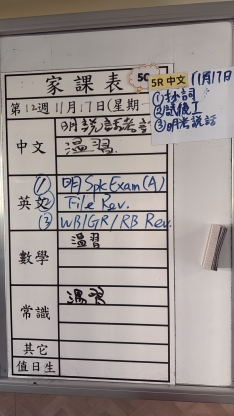 家課表 5C
第12週 11月17日(星期一
中文 明說話考試
溫習
英文 ① 明Spk Exam(A)
② File Rev.
③ WB/GR/RB Rev.
數學 溫習
常識 溫習
其它
值日生
5R 中文 11月17日
①抄詞
②試後工
③明考說話